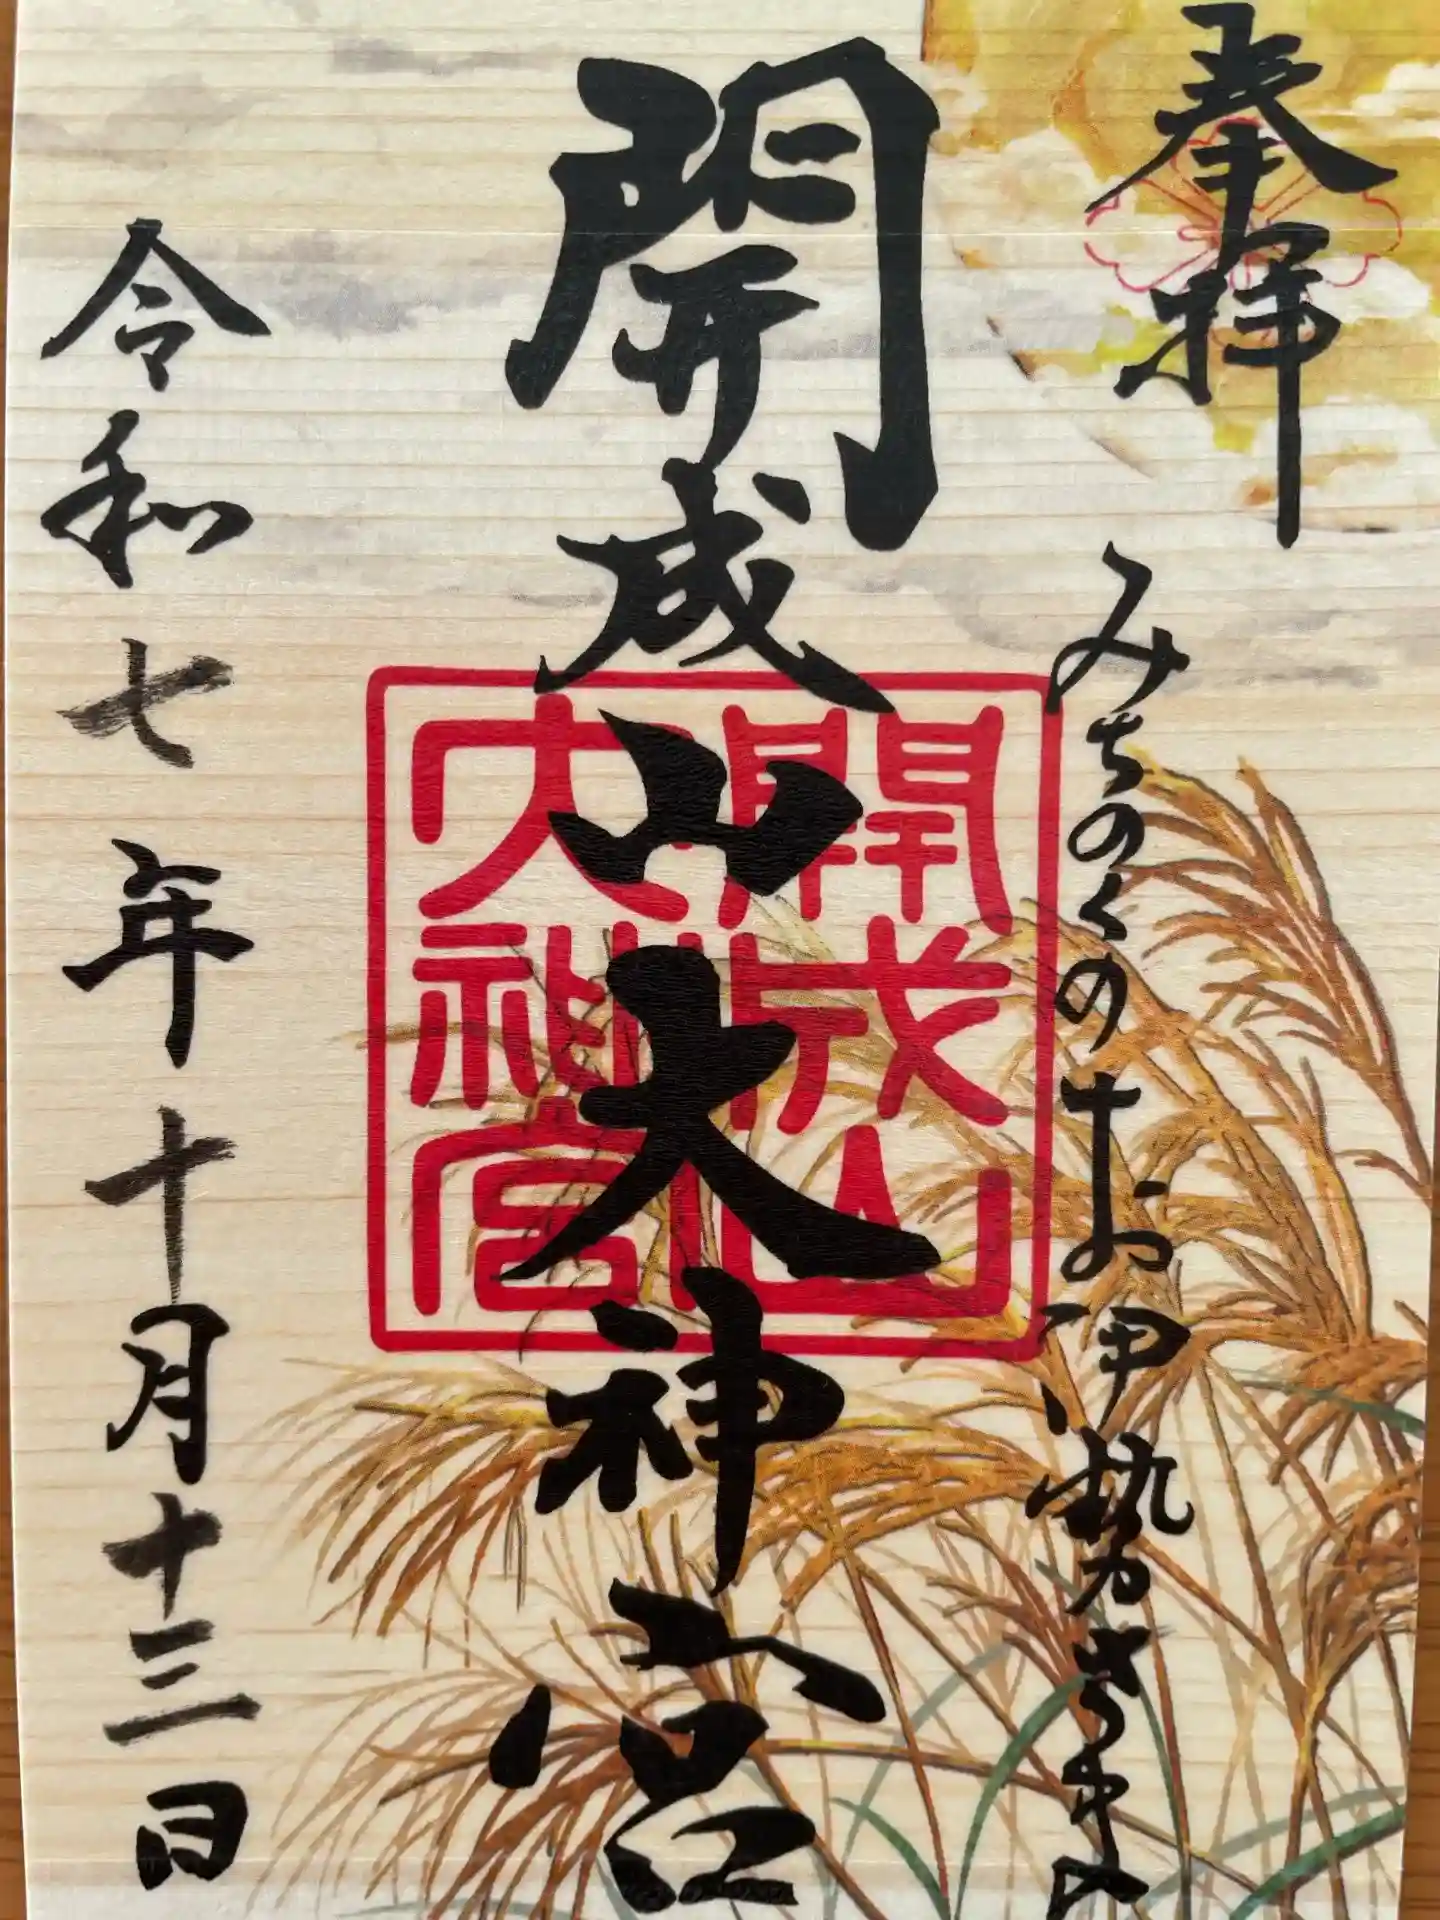 奉拝
みちのくのお伊勢さま
開成山大神宮
開成山
大神宮
令和七年十月十三日